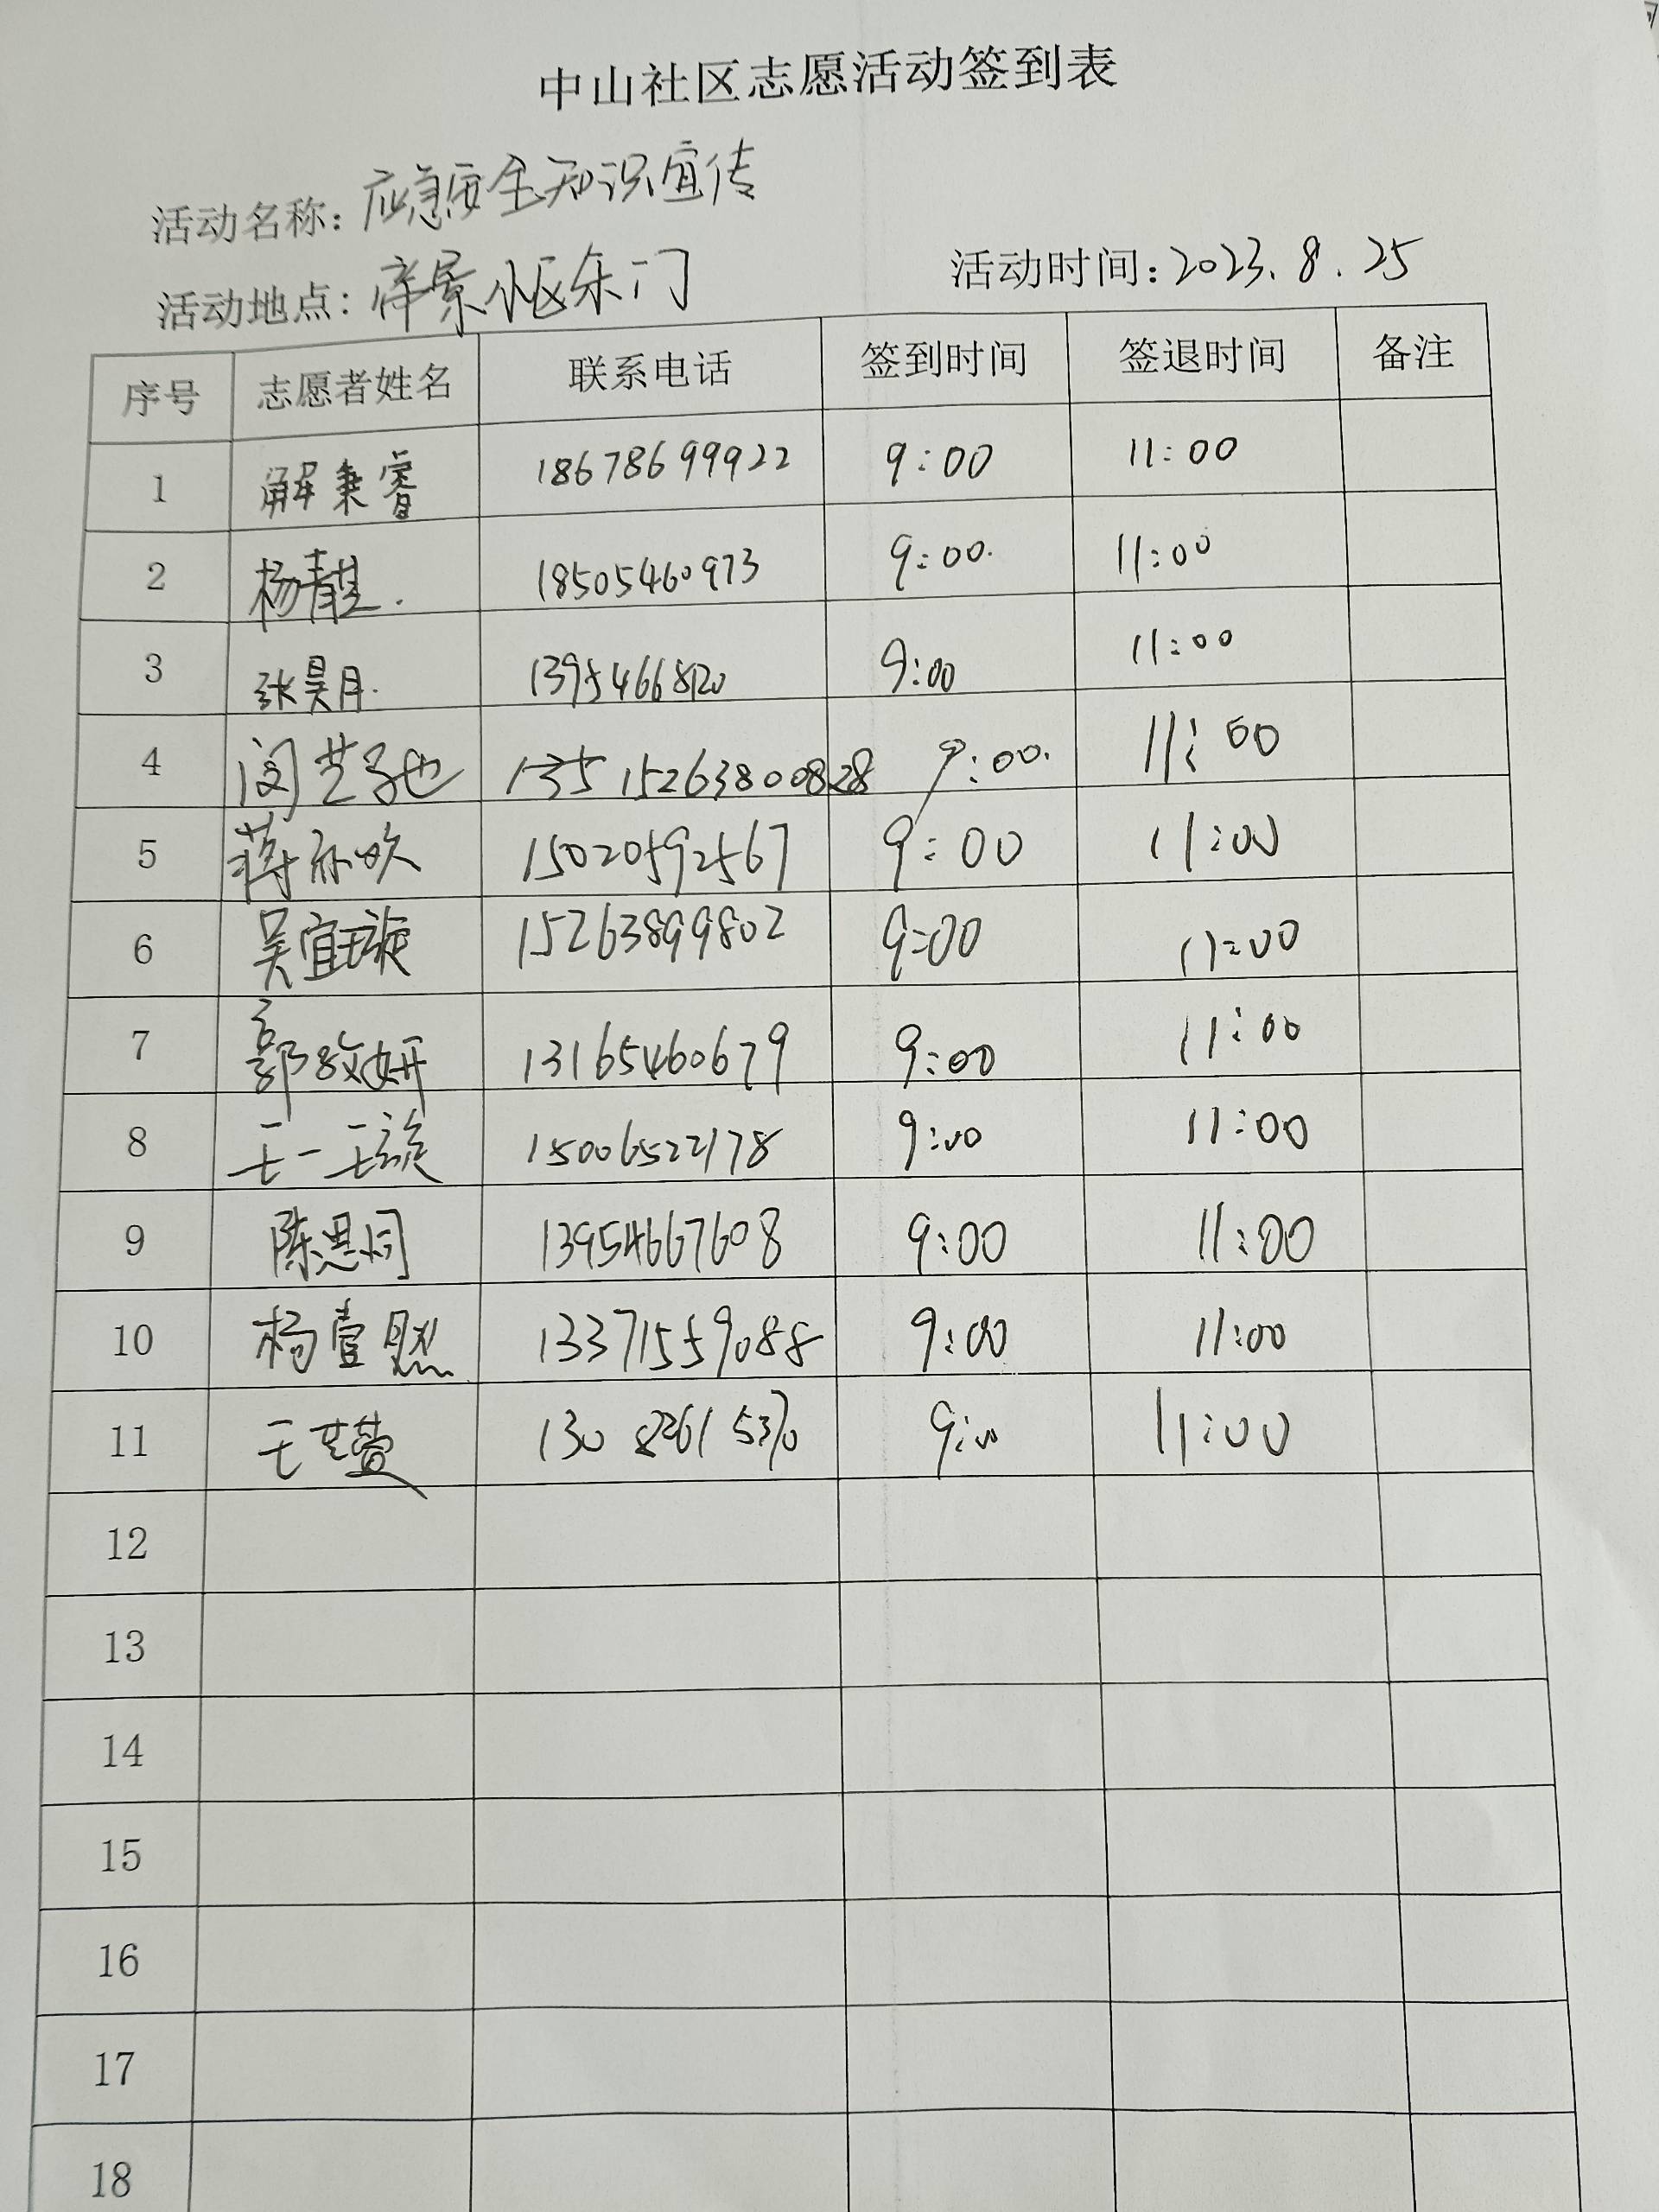 中山社区志愿活动签到表
活动名称：应急安全知识宣传
活动地点：帝景小区东门 活动时间：2023.8.25
序号 志愿者姓名 联系电话 签到时间 签退时间 备注
1 解秉睿 18678699922 9:00 11:00
2 杨 18505460973 9:00. 11:00
3 张昊月. 9:00 11:00
4 闫芝 15263800828 9:00. 11:00
5 蒋 15020592567 9:00 11:00
6 吴宜璇 15263899802 9:00 11:00
7 郭妍 13165460679 9:00 11:00
8 王一璇 15006522178 9:00 11:00
9 陈思同 13954667608 9:00 11:00
10 杨壹然 13371559088 9:00 11:00
11 王艺萱 9:00 11:00
12
13
14
15
16
17
18